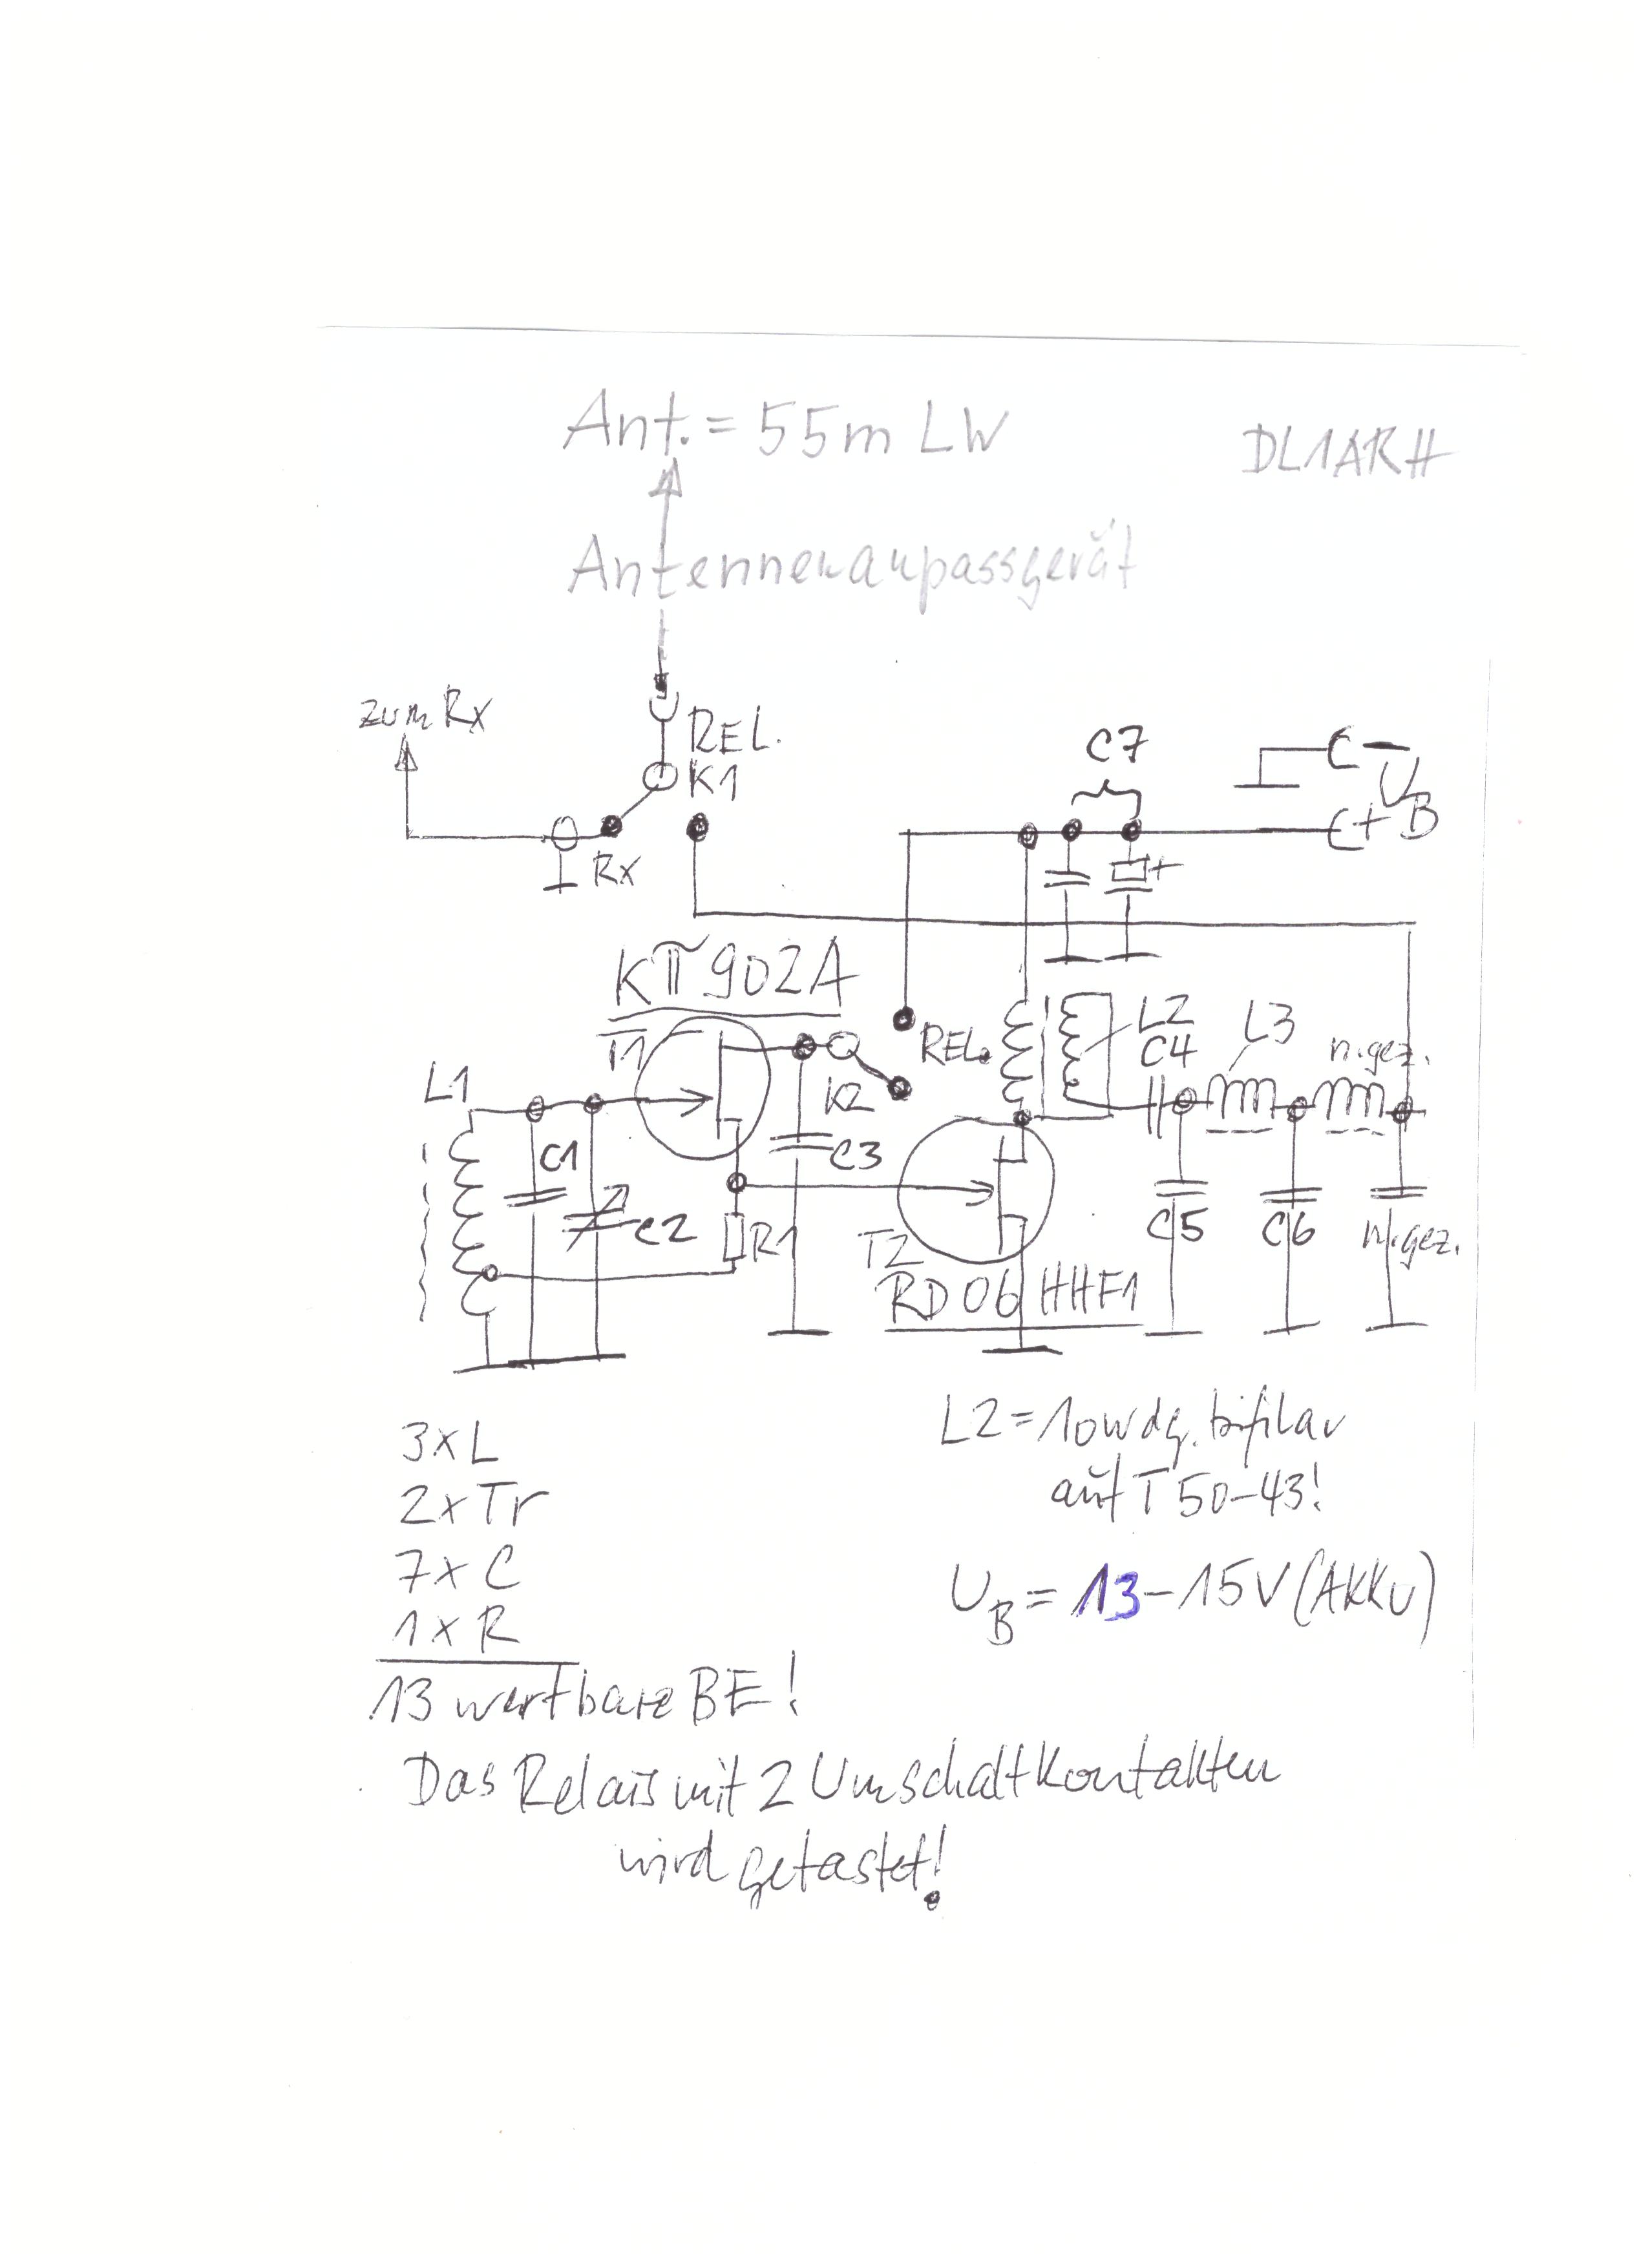 Ant. = 55m LW
DL1ARH
Antennenanpassgerät
zum Rx
REL.
K1
Rx
C7
-
UB
+
KП902A
T1
L1
C1
C2
R1
K2
C3
REL.
L2
C4
L3
n.gez.
T2
RD06HHF1
C5
C6
n.gez.
3xL
2xTr
7xC
1xR
13 wertbare BE!
L2=10wdg. bifilar
auf T50-43!
UB = 13-15V (AKKU)
Das Relais mit 2 Umschaltkontakten
wird getastet!